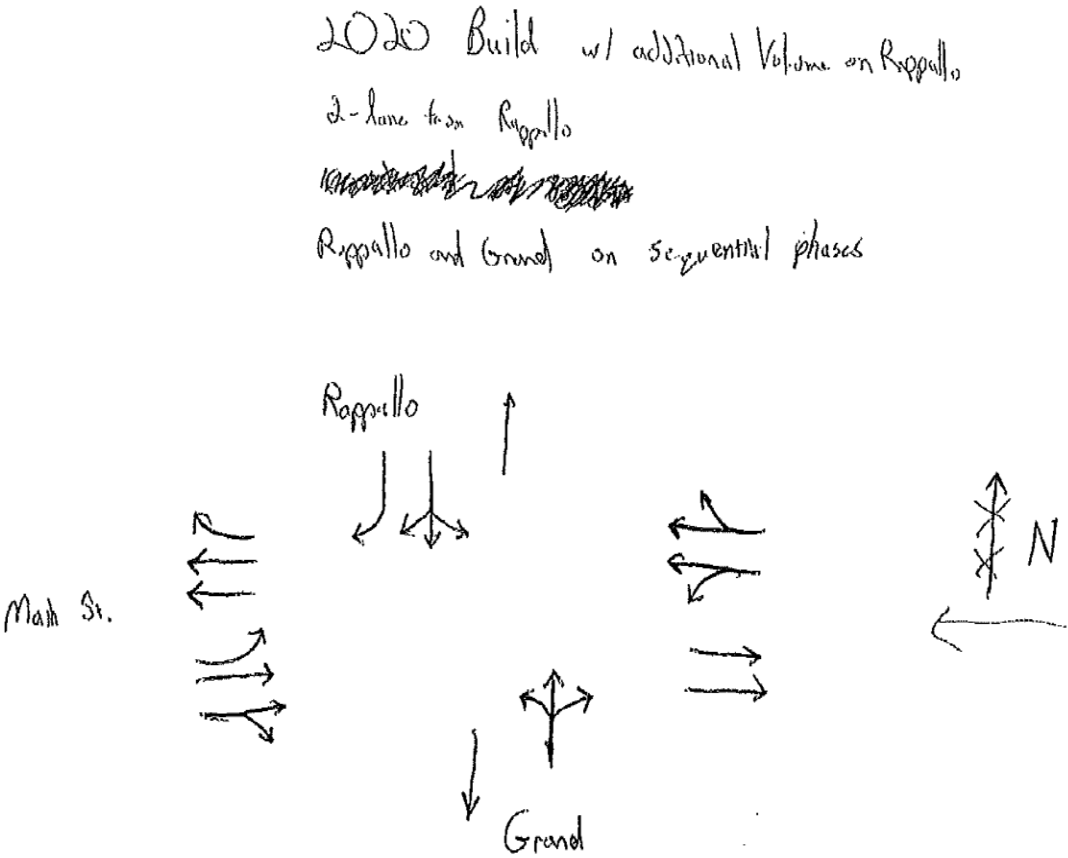 2020 Build w/ additional Volume on Rappallo
2-lane from Rappallo
Rappallo and Grand on sequential phases
Rappallo
N
Main St.
Grand